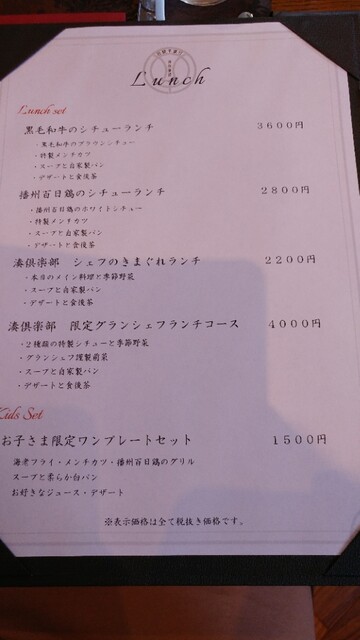 Lunch
Lunch set
黒毛和牛のシチューランチ 3600円
・黒毛和牛のブラウンシチュー
・特製メンチカツ
・スープと自家製パン
・デザートと食後茶
播州百日鶏のシチューランチ 2800円
・播州百日鶏のホワイトシチュー
・特製メンチカツ
・スープと自家製パン
・デザートと食後茶
湊倶楽部 シェフのきまぐれランチ 2200円
・本日のメイン料理と季節野菜
・スープと自家製パン
・デザートと食後茶
湊倶楽部 限定グランシェフランチコース 4000円
・2種類の特製シチューと季節野菜
・グランシェフ謹製前菜
・スープと自家製パン
・デザートと食後茶
Kids Set
お子さま限定ワンプレートセット 1500円
海老フライ・メンチカツ・播州百日鶏のグリル
スープと柔らか白パン
お好きなジュース・デザート
※表示価格は全て税抜き価格です。